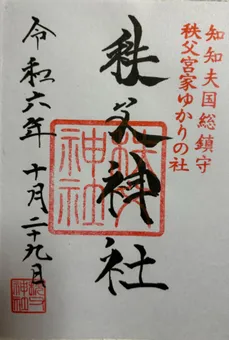 知知夫国総鎮守
秩父宮家ゆかりの社
秩父神社
秩父神社
令和六年十月二十九日